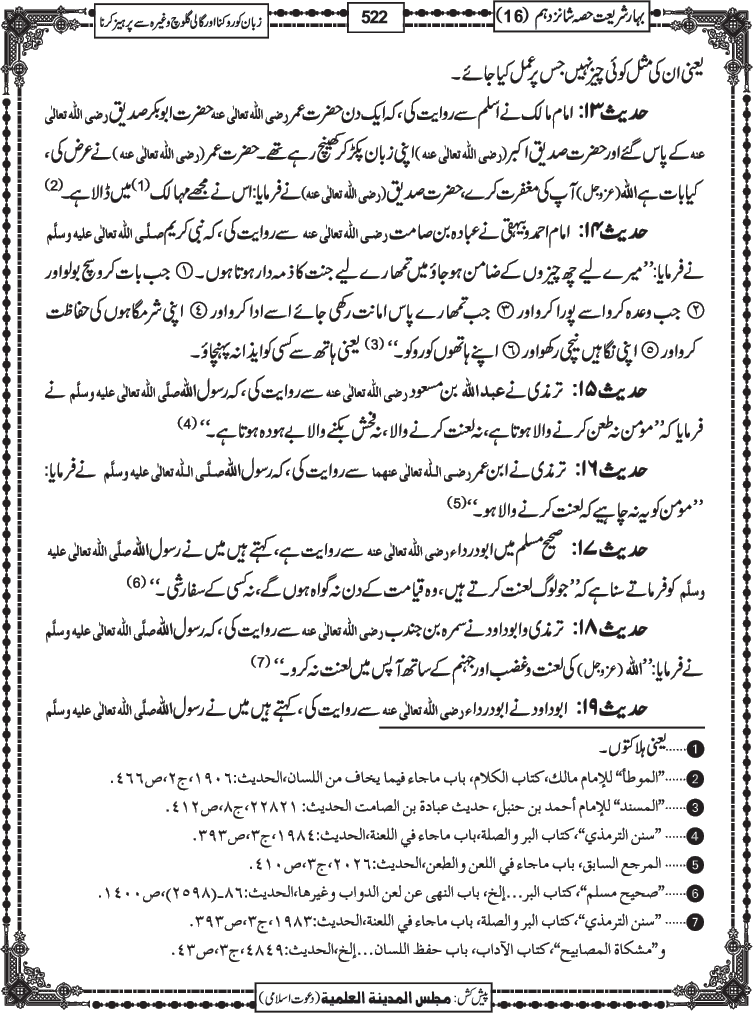 بہار شریعت حصہ شانزدہم (16)
522
زبان کو روکنا اور گالی گلوچ وغیرہ سے پرہیز کرنا
یعنی ان کی مثل کوئی چیز نہیں جس پر عمل کیا جائے۔
حدیث ۱۳: امام مالک نے اسلم سے روایت کی، کہ ایک دن حضرت عمر رضی اللہ تعالیٰ عنہ حضرت ابوبکر صدیق رضی اللہ تعالیٰ
عنہ کے پاس گئے اور حضرت صدیق اکبر (رضی اللہ تعالیٰ عنہ) اپنی زبان پکڑ کر کھینچ رہے تھے۔ حضرت عمر (رضی اللہ تعالیٰ عنہ) نے عرض کی،
کیا بات ہے اللہ (عزوجل) آپ کی مغفرت کرے، حضرت صدیق (رضی اللہ تعالیٰ عنہ) نے فرمایا: اس نے مجھے مہالک(1) میں ڈالا ہے۔(2)
حدیث ۱۴: امام احمد و بیہقی نے عبادہ بن صامت رضی اللہ تعالیٰ عنہ سے روایت کی، کہ نبی کریم صلَّی اللہ تعالیٰ علیہ وسلَّم
نے فرمایا: ”میرے لیے چھ چیزوں کے ضامن ہوجاؤ میں تمھارے لیے جنت کا ذمہ دار ہوتا ہوں۔ ① جب بات کرو سچ بولو اور
② جب وعدہ کرو اسے پورا کرو اور ③ جب تمھارے پاس امانت رکھی جائے اسے ادا کرو اور ④ اپنی شرمگاہوں کی حفاظت
کرو اور ⑤ اپنی نگاہیں نیچی رکھو اور ⑥ اپنے ہاتھوں کو روکو۔“(3) یعنی ہاتھ سے کسی کو ایذا نہ پہنچاؤ۔
حدیث ۱۵: ترمذی نے عبد اللہ بن مسعود رضی اللہ تعالیٰ عنہ سے روایت کی، کہ رسول اللہ صلَّی اللہ تعالیٰ علیہ وسلَّم نے
فرمایا کہ ”مومن نہ طعن کرنے والا ہوتا ہے، نہ لعنت کرنے والا، نہ فحش بکنے والا بے ہودہ ہوتا ہے۔“(4)
حدیث ۱۶: ترمذی نے ابن عمر رضی اللہ تعالیٰ عنھما سے روایت کی، کہ رسول اللہ صلَّی اللہ تعالیٰ علیہ وسلَّم نے فرمایا:
”مومن کو یہ نہ چاہیے کہ لعنت کرنے والا ہو۔“(5)
حدیث ۱۷: صحیح مسلم میں ابودرداء رضی اللہ تعالیٰ عنہ سے روایت ہے، کہتے ہیں میں نے رسول اللہ صلَّی اللہ تعالیٰ علیہ
وسلَّم کو فرماتے سنا ہے کہ ”جو لوگ لعنت کرتے ہیں، وہ قیامت کے دن نہ گواہ ہوں گے، نہ کسی کے سفارشی۔“(6)
حدیث ۱۸: ترمذی و ابو داود نے سمرہ بن جندب رضی اللہ تعالیٰ عنہ سے روایت کی، کہ رسول اللہ صلَّی اللہ تعالیٰ علیہ وسلَّم
نے فرمایا: ”اللہ (عزوجل) کی لعنت و غضب اور جہنم کے ساتھ آپس میں لعنت نہ کرو۔“(7)
حدیث ۱۹: ابو داود نے ابودرداء رضی اللہ تعالیٰ عنہ سے روایت کی، کہتے ہیں میں نے رسول اللہ صلَّی اللہ تعالیٰ علیہ وسلَّم
1 ......یعنی ہلاکتوں۔
2 ......”الموطأ“ للإمام مالك، کتاب الکلام، باب ماجاء فیما یخاف من اللسان، الحدیث:۱۹۰۶، ج۲، ص۴۶۶.
3 ......”المسند“ للإمام أحمد بن حنبل، حدیث عبادۃ بن الصامت الحدیث: ۲۲۸۲۱، ج۸، ص۴۱۲.
4 ......”سنن الترمذي“، کتاب البر والصلۃ، باب ماجاء في اللعنۃ، الحدیث:۱۹۸۴، ج۳، ص۳۹۳.
5 ......المرجع السابق، باب ماجاء في اللعن والطعن، الحدیث:۲۰۲۶، ج۳، ص۴۱۰.
6 ......”صحیح مسلم“، کتاب البر...إلخ، باب النھی عن لعن الدواب وغیرھا، الحدیث:۸۶۔(۲۵۹۸)، ص۱۴۰۰.
7 ......”سنن الترمذي“، کتاب البر والصلۃ، باب ماجاء في اللعنۃ، الحدیث:۱۹۸۳، ج۳، ص۳۹۳.
و ”مشکاۃ المصابیح“، کتاب الآداب، باب حفظ اللسان...إلخ، الحدیث:۴۸۴۹، ج۳، ص۴۳.
پیش کش: مجلس المدینة العلمیة (دعوت اسلامی)